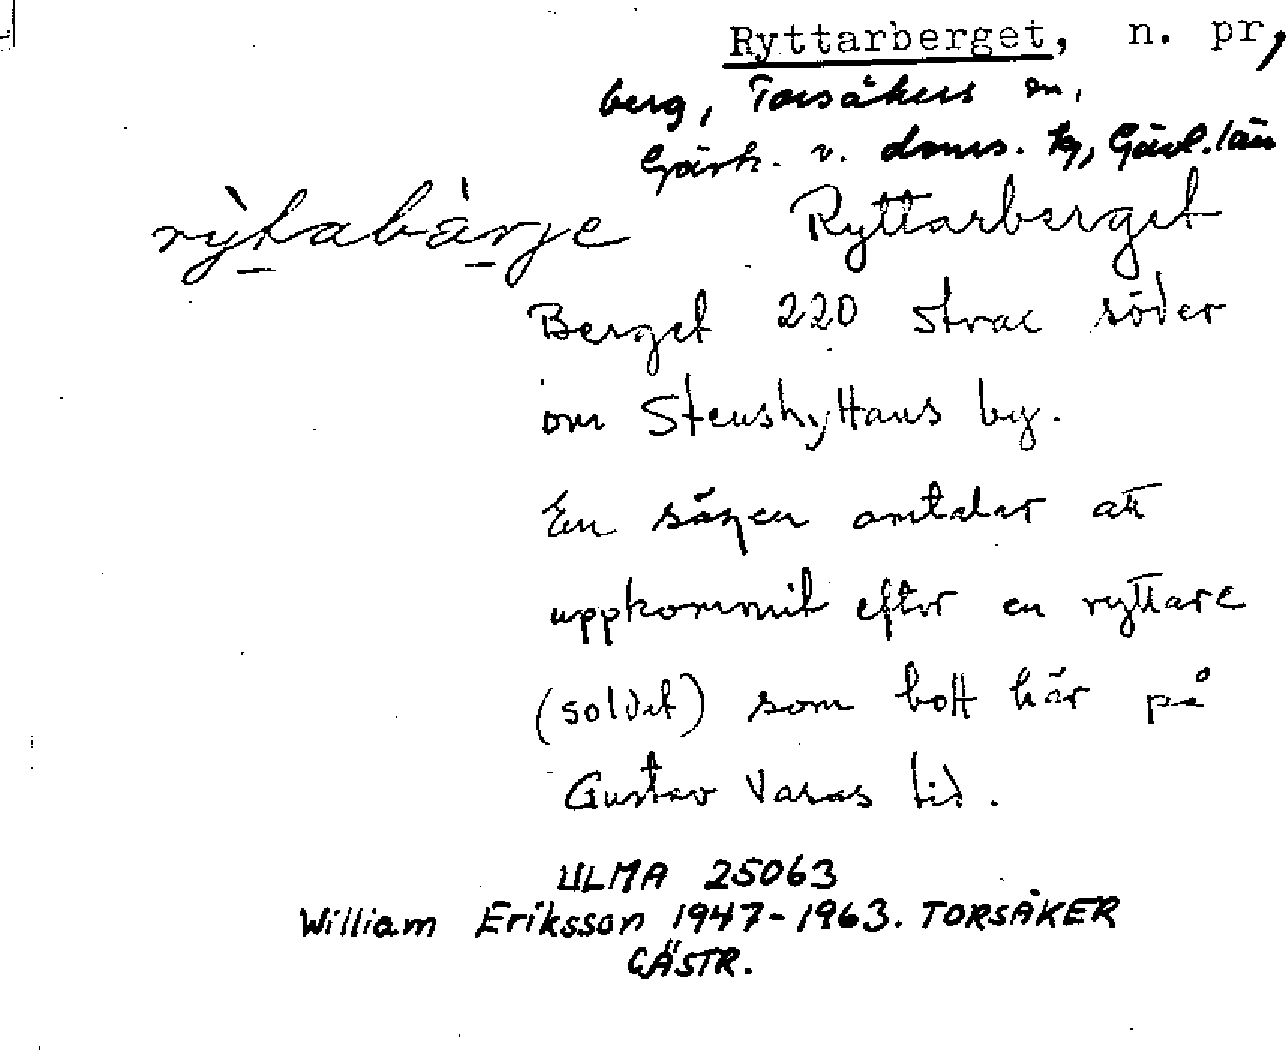 Ryttarberget, n. pr,
berg, Torsåkers sn,
Gästr. v. doms. tg, Gävl. län
rỳtabàrje Ryttarberget
Berget 220 strax söder
om Stenshyttans by.
En sägen omtalar att
uppkommit efter en ryttare
(soldat) som bott här på
Gustav Vasas tid.
ULMA 25063
William Eriksson 1947-1963. TORSÅKER
GÄSTR.